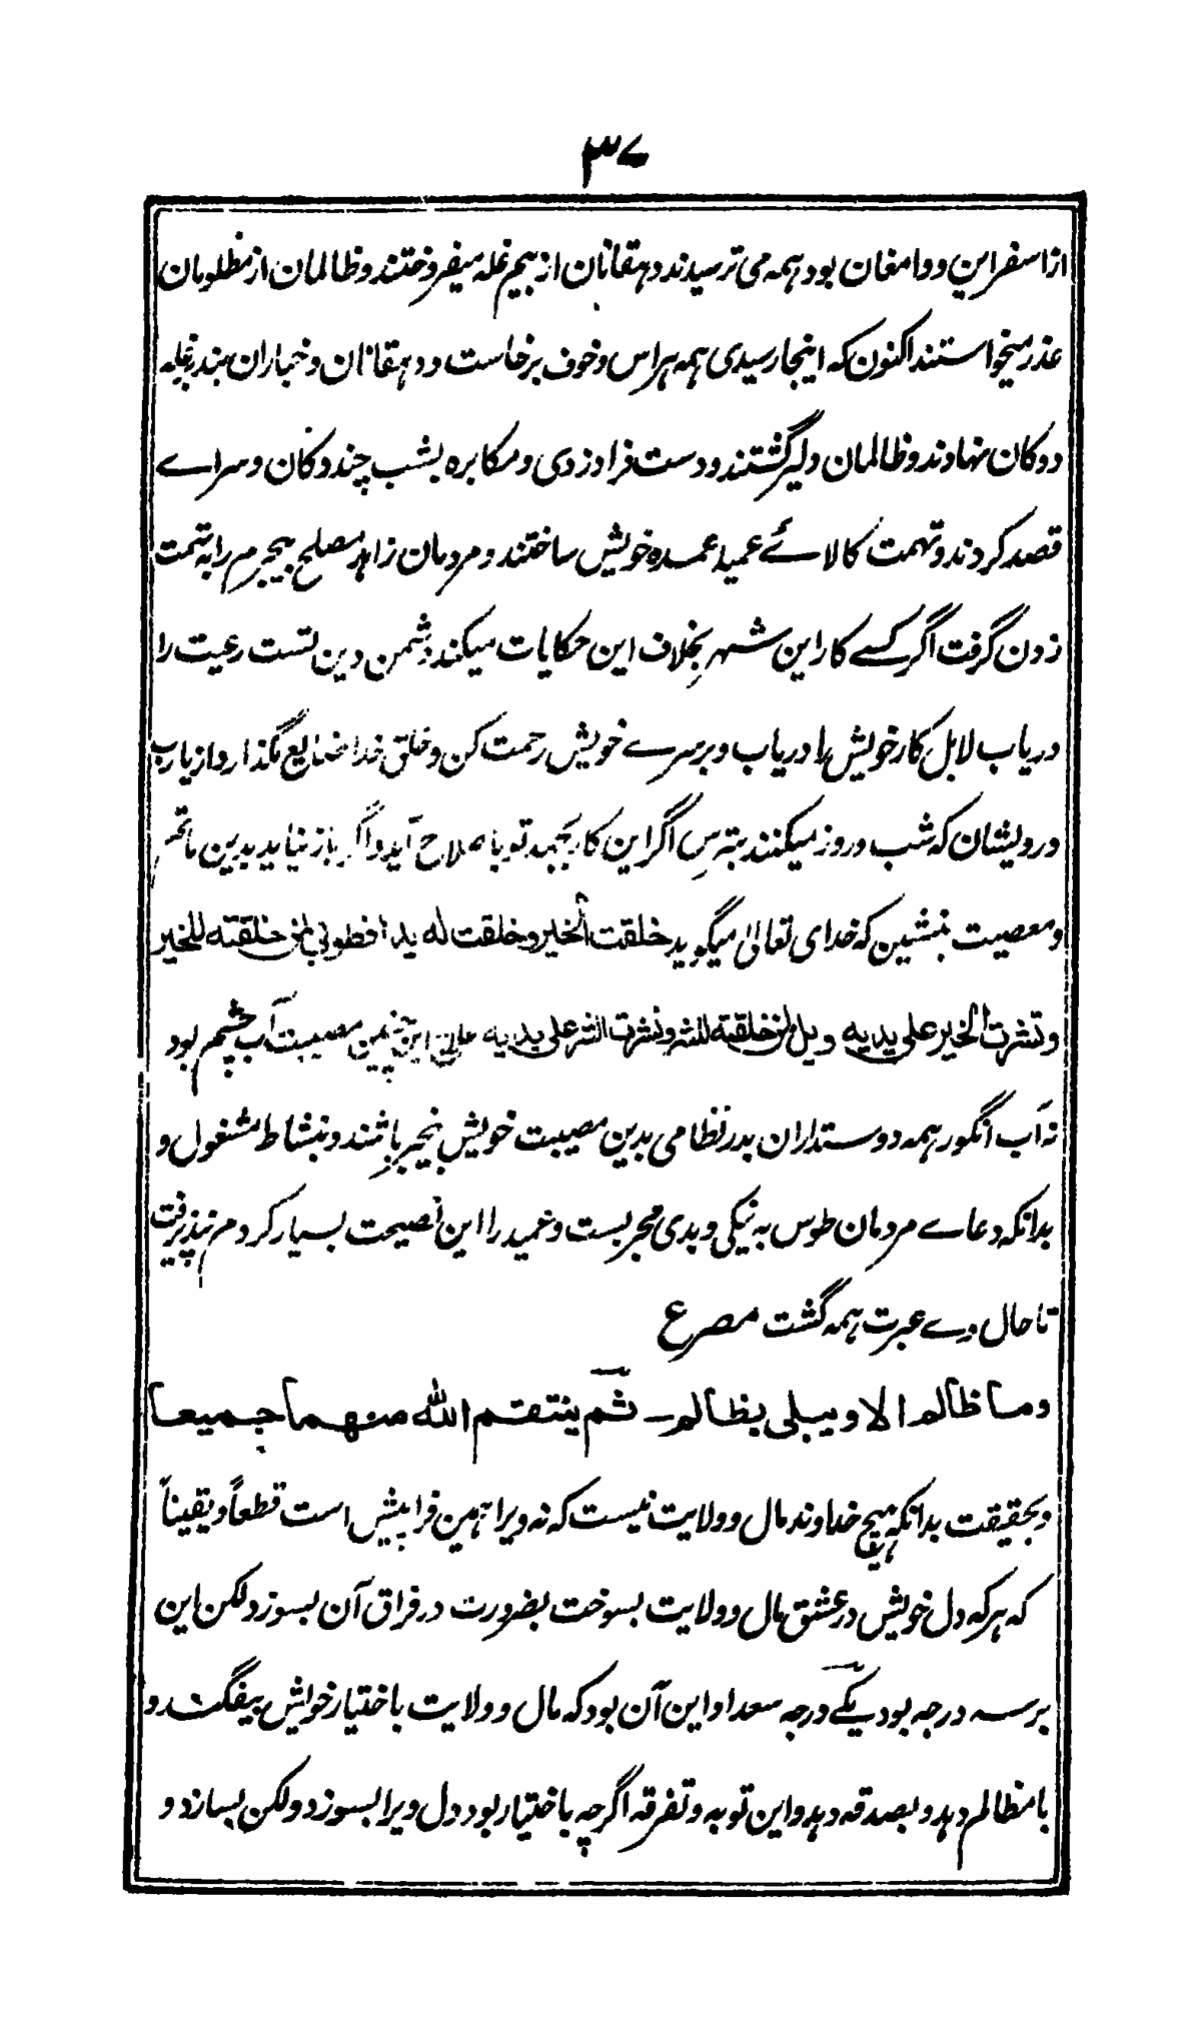 ۳۷
از اسفراین و دامغان بود همه می ترسیدند و دهقانان از بیم غله میفروختند و ظالمان از مظلومان
عذر میخواستند اکنون که اینجا رسیدی همه هراس و خوف برخاست و دهقانان و خبازان بند بر غله
و دکان نهادند و ظالمان دلیر گشتند و دست فرا دزدی و مکابره بشب چند دکان و سرائے
قصد کردند و تهمت کالائے عمید عمده خویش ساختند و مردمان زاهد مصلح بیجرم را به تهمت
زدن گرفت اگر کسے کار این شهر بخلاف این حکایات میکند دشمن دین تست رعیت را
دریاب لابل کار خویش را دریاب و بر سرے خویش رحمت کن و خلق خدا ضایع مگذار و از یارب
درویشان که شب و روز میکنند بترس اگر این کار بجهد تو باصلاح آید و اگر باز نیاید بدین ماتم
و معصیت بنشین که خدای تعالیٰ میگوید خلقت الخیر و خلقت له یدا فطوبی لمن خلقته للخیر
و نشرت الخیر علی یدیه ویل لمن خلقته للشر و نشرت الشر علی یدیه علاج این چنین مصیبت آب چشم بود
نه آب انگور همه دوستداران بدر نظامی بدین مصیبت خویش بیخبر باشند و بنشاط مشغول و
بدانکه دعاے مردمان طوس به نیکی و بدی مجربست و عمید را این نصیحت بسیار کردم نپذیرفت
تا حال وے عبرت همه گشت مصرع
وما ظالم الا ویبلی بظالم ثم ینتقم الله منهما جمیعا
و بحقیقت بدانکه هیچ خداوند مال و ولایت نیست که نه ویرا همین فرا پیش است قطعاً و یقیناً
که هر که دل خویش در عشق مال و ولایت بسوخت بضرورت در فراق آن بسوزد لکن این
بر سه درجه بود یکے درجه سعدا و این آن بود که مال و ولایت باختیار خویش بیفگند و
با مظالم دهد و بصدقه دهد و این توبه و تفرقه اگرچه باختیار بود دل ویرا بسوزد ولکن بسازد و